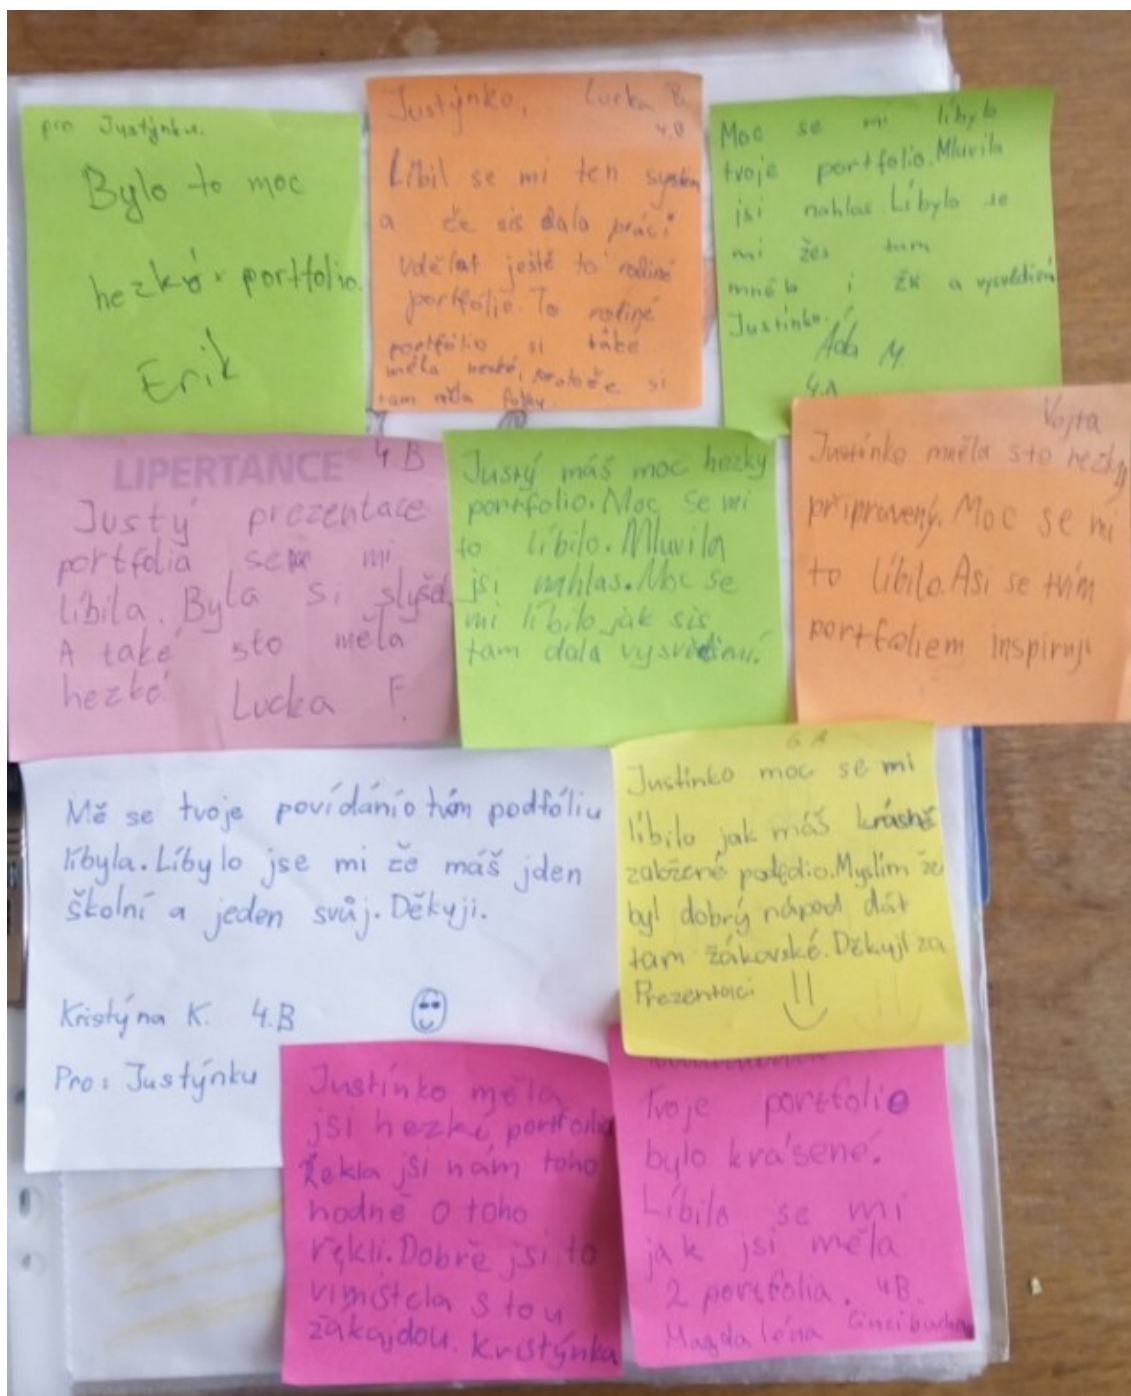 pro Justýnku.
Bylo to moc
hezké portfolio.
Erik
Justýnko, Lucka B.
4.B
Líbil se mi ten systém
a če sis dala práci
vdělat ještě to rodiné
portfólio. To rodiné
portfólio si táke
měla hezké, protože si
tam měla fotky.
Moc se mi líbylo
tvoje portfolio. Mluvila
jsi nahlas. Líbylo se
mi žes tam
měla i ŽK a vysvědčení
Justínko.
Ada M.
4.A
LIPERTANCE
4B
Justý prezentace
portfolia sem mi
líbila. Byla si slyšet.
A také sto měla
hezké.
Lucka F.
Justý máš moc hezky
portfolio. Moc se mi
to líbilo. Mluvila
jsi nahlas. Moc se
mi líbilo jak sis
tam dala vysvědčení.
Vojta
Justínko měla sto hezky
připravený. Moc se mi
to líbilo. Asi se tvím
portfoliem inspiruji
Mě se tvoje povídání o tvém podfóliu
líbyla. Líbylo jse mi če máš jden
školní a jeden svůj. Děkuji.
Kristýna K. 4.B
Pro: Justýnku
Justínko moc se mi
líbilo jak máš krásně
založené potfolio. Myslím že
byl dobrý nápod dát
tam žákovské. Děkuji za
Prezentaci
Justínko měla
jsi hezké portfolio
Řekla jsi nám toho
hodně o toho
řekli. Dobře jsi to
vimistela s tou
žákajdou. Kristýnka
Tvoje portfolio
bylo krásené.
Líbilo se mi
jak jsi měla
2 portfolia. 4B.
Magdaléna